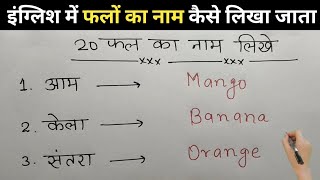 इंग्लिश में फलों का नाम कैसे लिखा जाता
20 फल का नाम लिखे
xxx xxx
1. आम → Mango
2. केला → Banana
3. संतरा → Orange